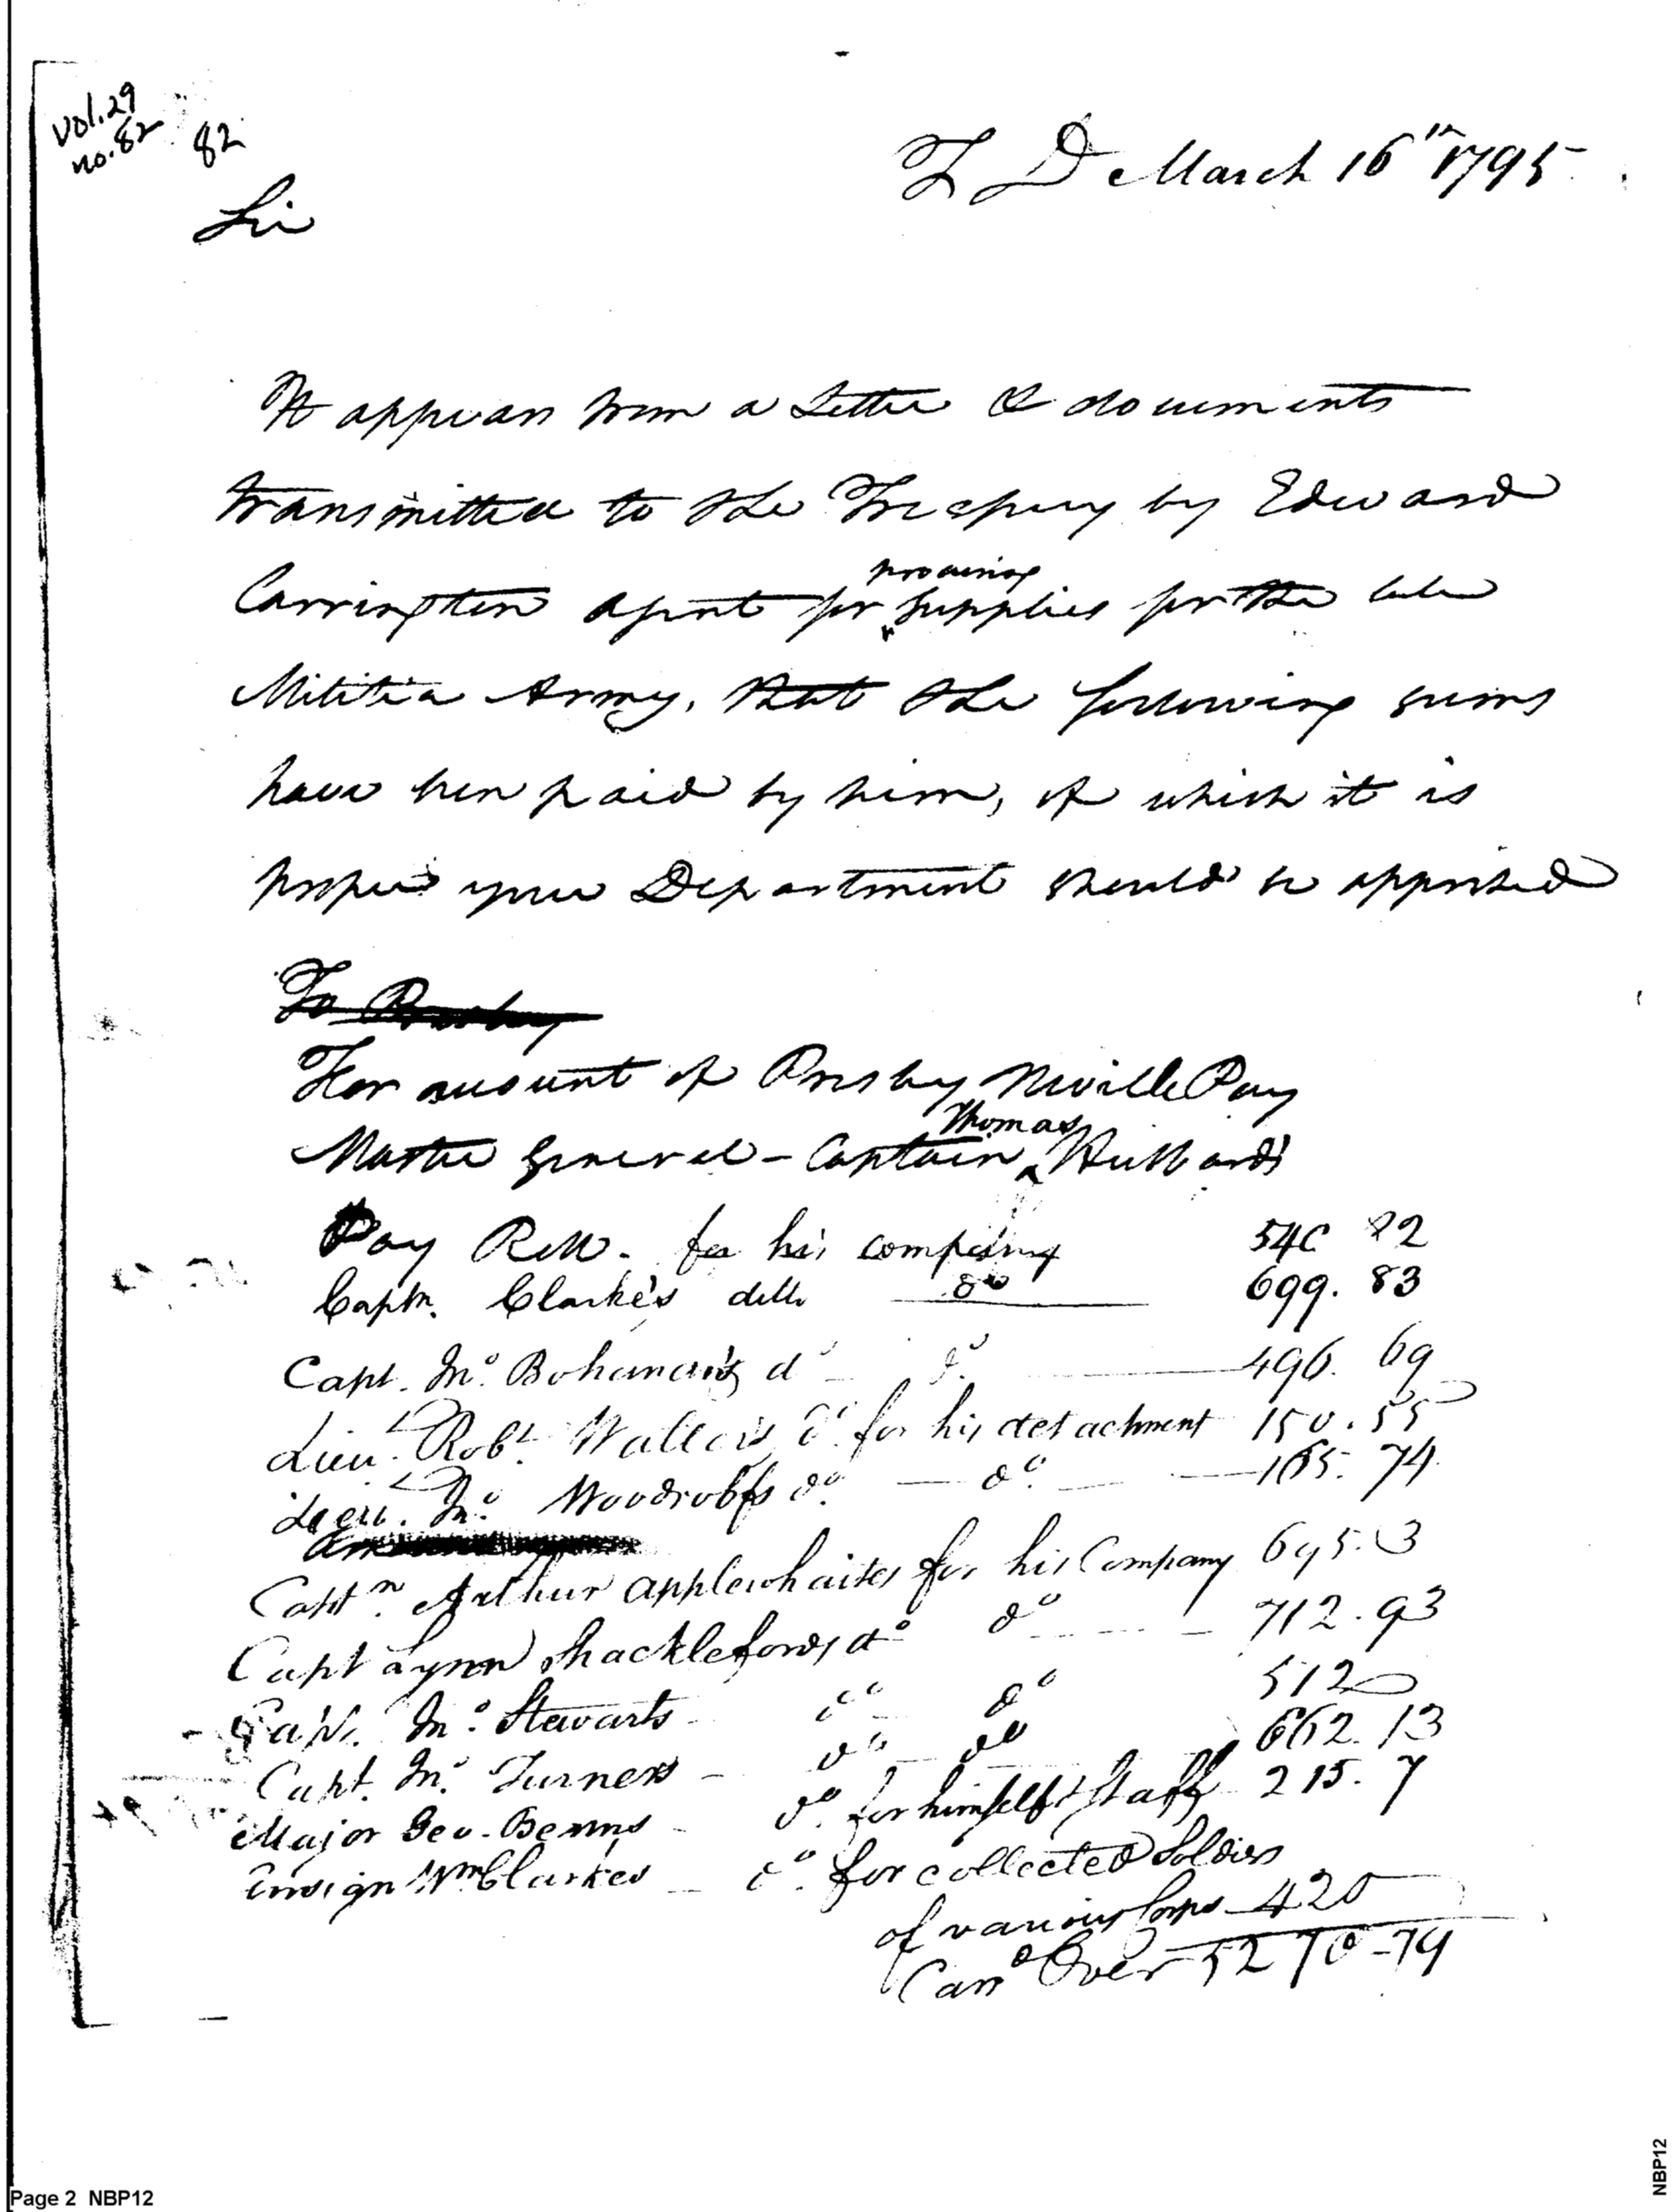 Vol. 29
no. 82
82
T D March 16th 1795
Sir
It appears from a Letter & documents
transmitted to the Treasury by Edward
Carrington Agent for procuring supplies for the late
Militia Army, that the following sums
have been paid by him, of which it is
proper your Department should be apprised
To Presley
For account of Presley Neville Pay
Master General - Captain Thomas Hubbards
Pay Roll. for his company 540 22
Captn. Clarke's ditto do 699. 83
Capt. Jno. Bohanan's do do 496. 69
Lieut. Robt. Waller's do. for his detachment 150. 55
Lieut. Jno. Woodrobfs do. do. 165. 74
Captn. Arthur Applewhaites for his Company 695. 3
Capt Lynn Shacklefords do do 712. 93
Capt. Jno. Stewarts do do 512
Capt. Jno. Turners do do 662. 13
Major Geo. Benns do. for himself & Staff 215. 7
Ensign Wm Clarkes do. for collected Soldiers
of various Corps 420
Card Over 5270-79
Page 2 NBP12
NBP12